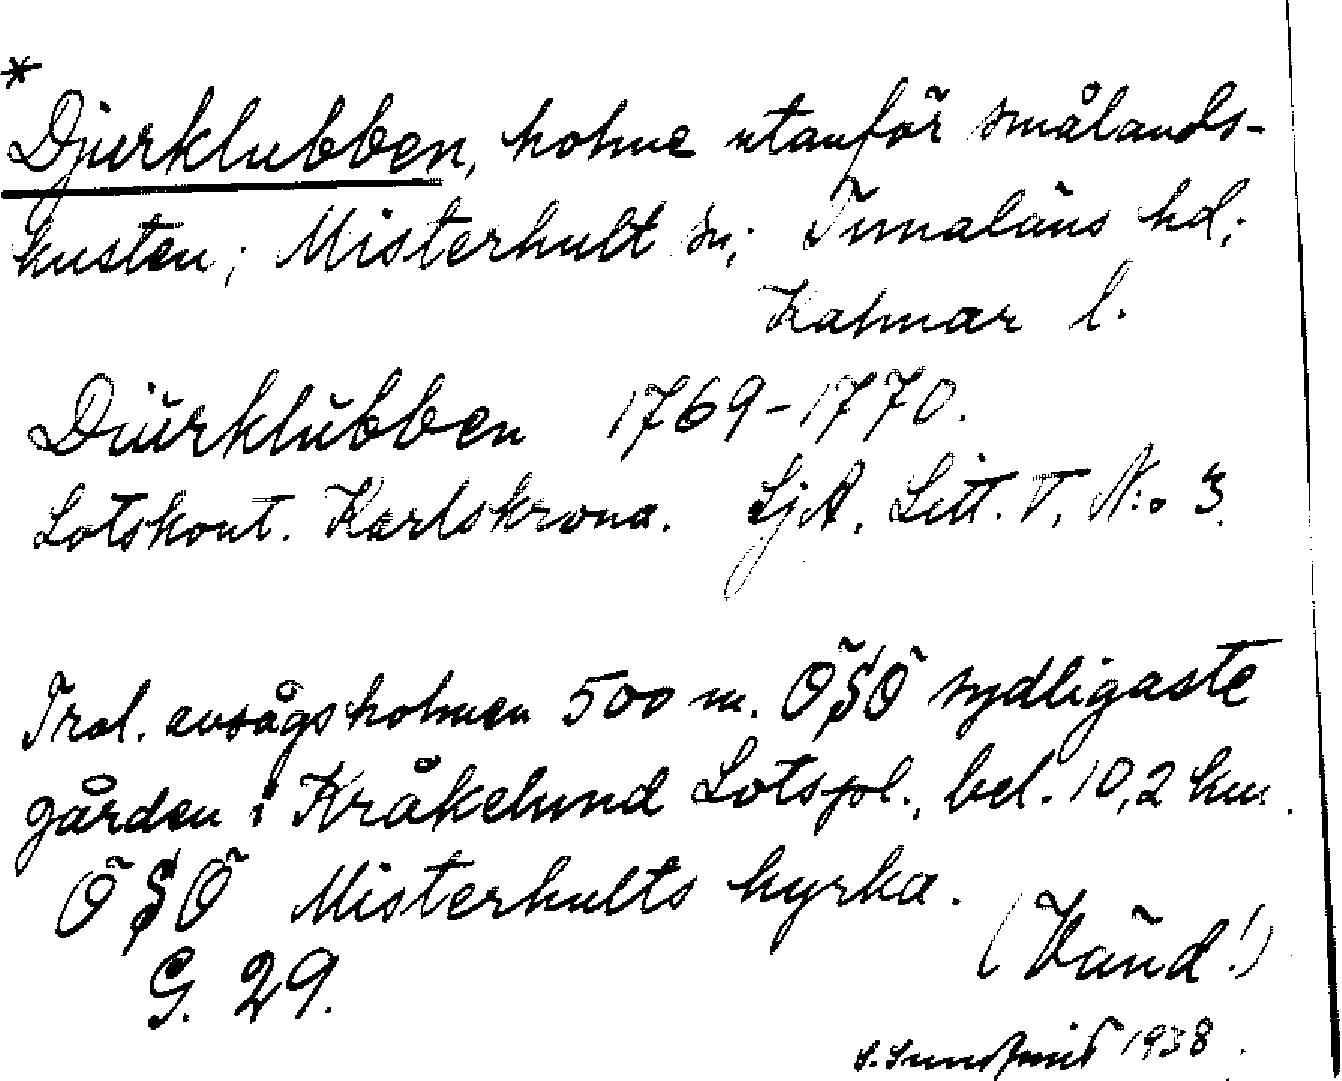 *
Djurklubben, holme utanför smålands-
kusten; Misterhult sn; Tunaläns hd;
Kalmar l.
Diurklubben 1769-1770.
Lotskont. Karlskrona. SjA. Litt. V, N:o 3.
Trol. avsågs holmen 500 m. ÖSÖ sydligaste
gården i Kråkelund Lotspl., bel. 10,2 km.
ÖSÖ Misterhults kyrka.
(Vänd!)
G. 29.
1938.